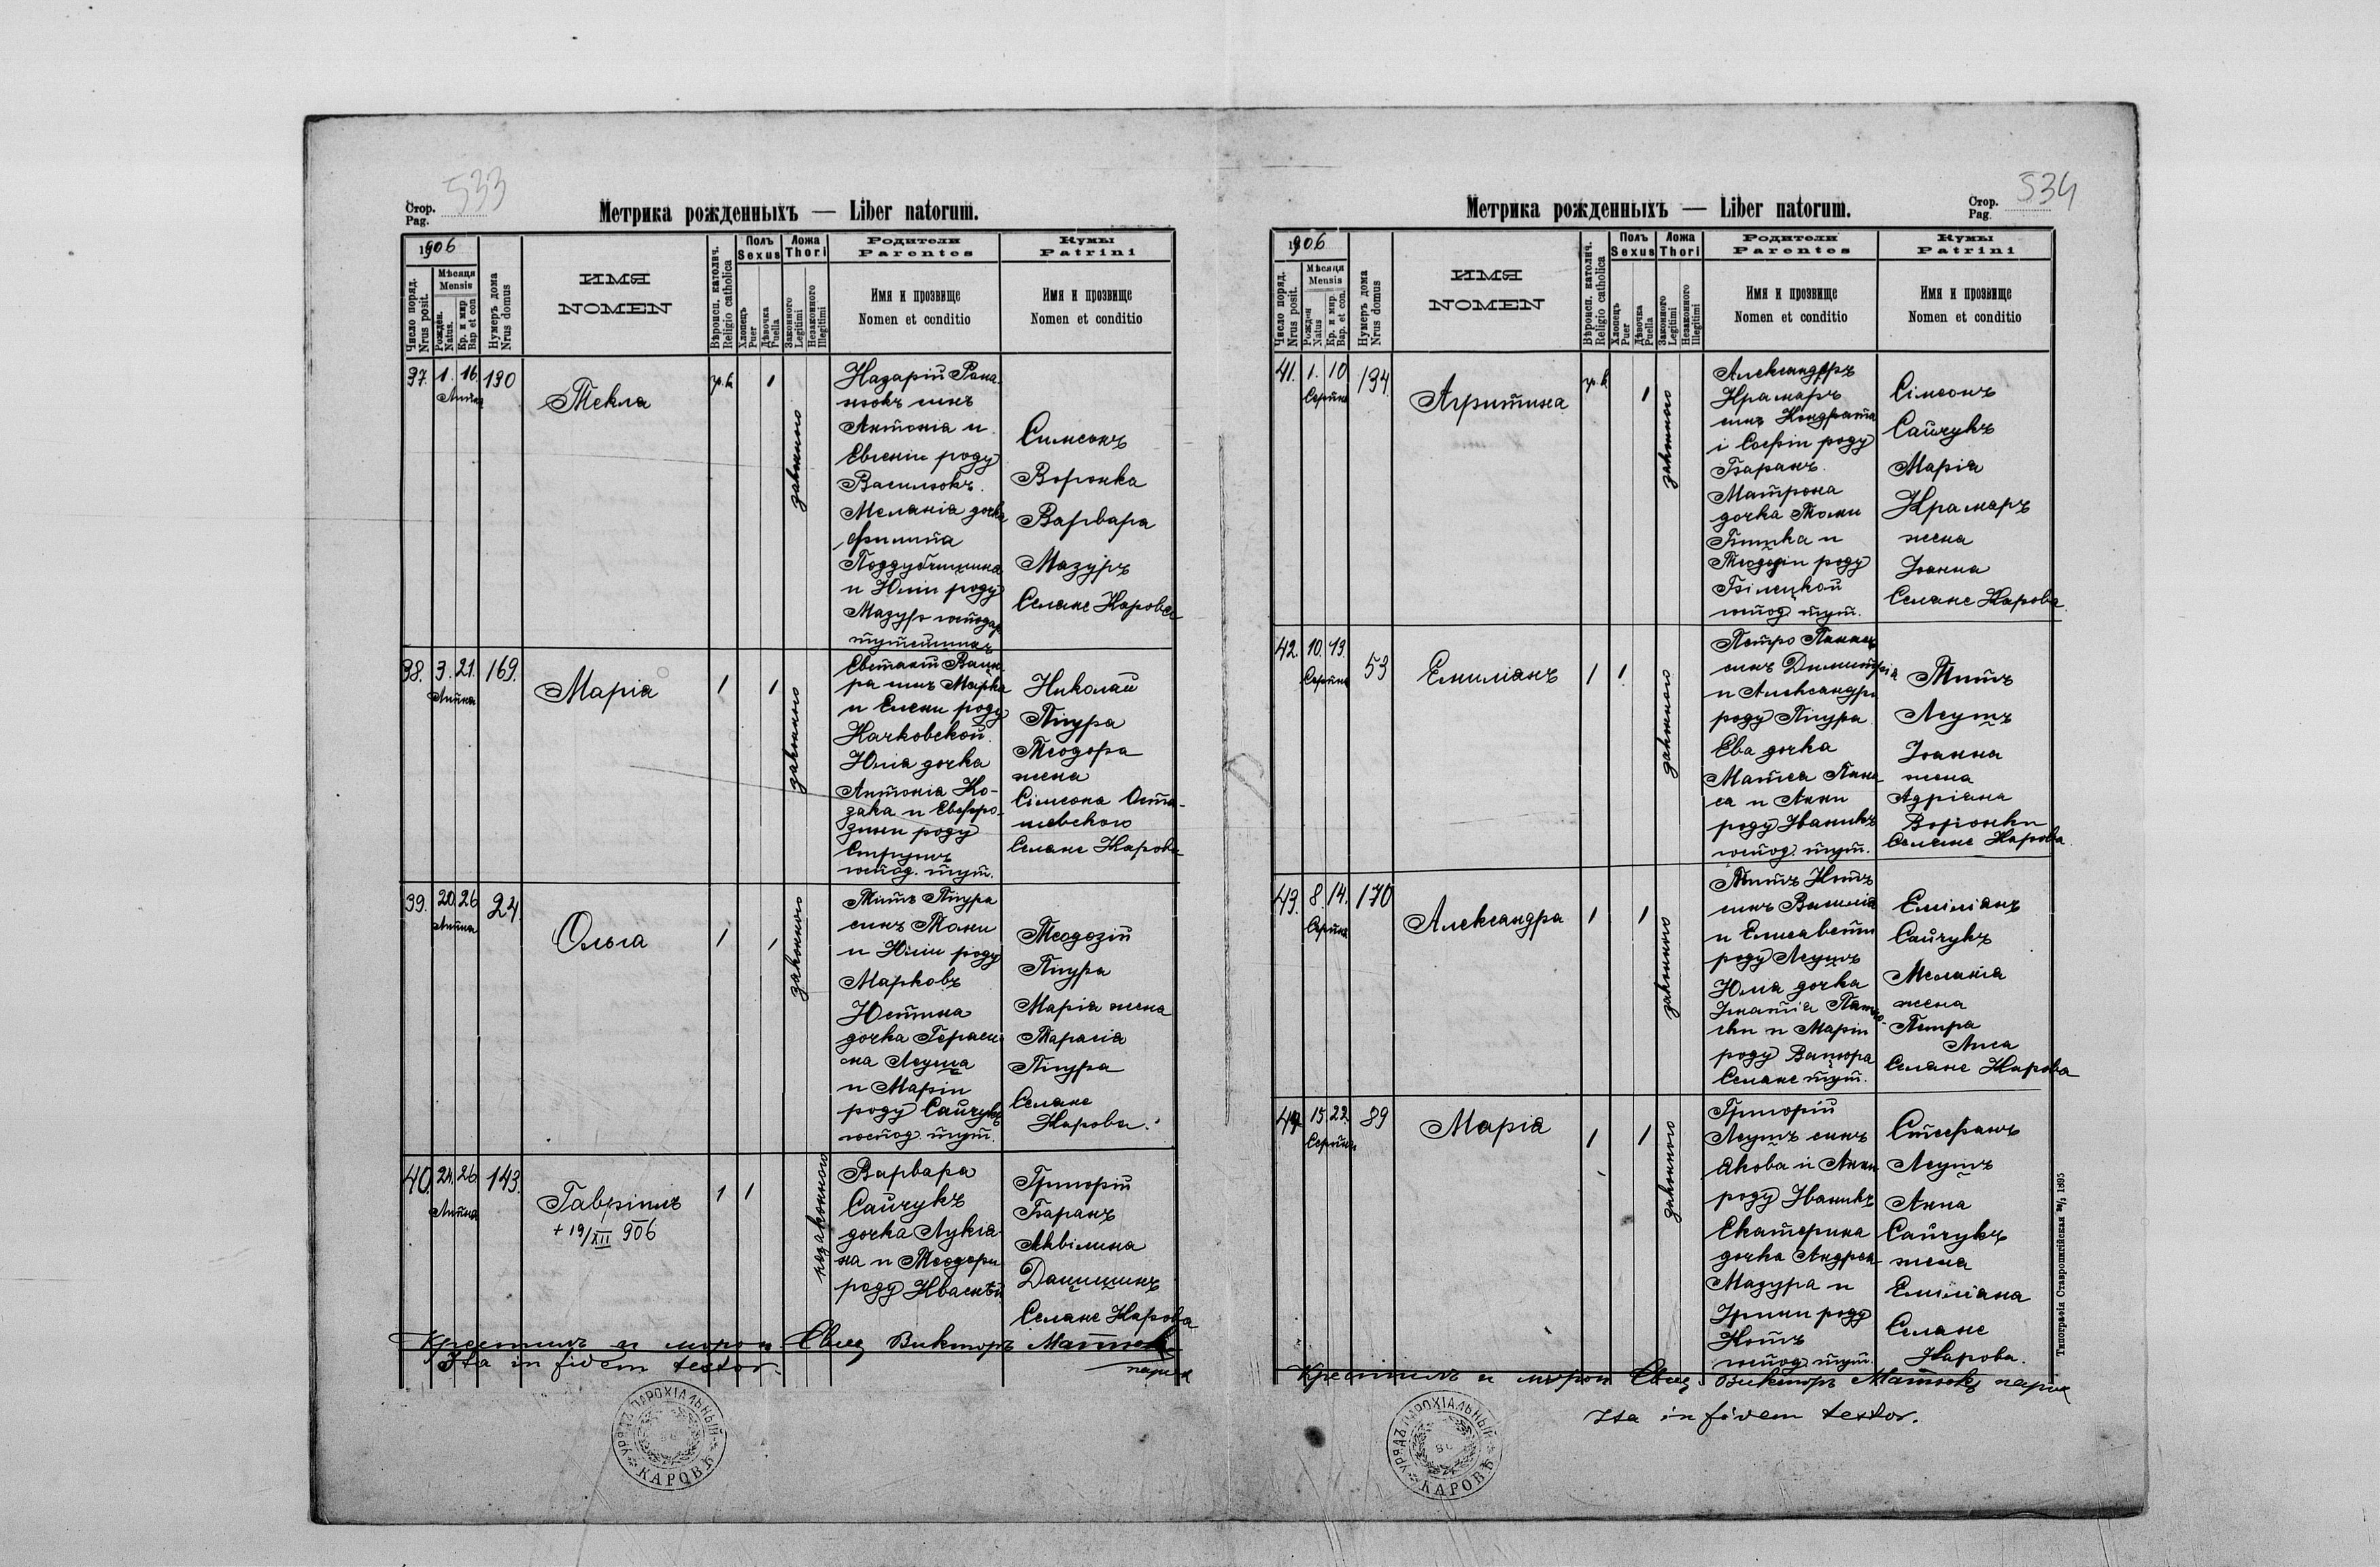 533
Стор.
Pag.
Метрика рожденныхъ — Liber natorum.
1906
Число поряд.
Nrus posit.
Мѣсяця
Mensis
Рожден.
Natus.
Кр. и мир
Bap. et con
Нумеръ дома
Nrus domus
ИМЯ
NOMEN
Вѣроисп. католич.
Religio catholica
Полъ
Sexus
Хлопецъ
Puer
Дѣвочка
Puella
Ложа
Thori
Законного
Legitimi
Незаконного
Illegitimi
Родители
Parentes
Имя и прозвище
Nomen et conditio
Кумы
Patrini
Имя и прозвище
Nomen et conditio
37. 1. 16. 190
Липня
Текла
гр. к.
1
законного
Назарій Рома
нюкъ сынъ
Антонія и
Евгеніи роду
Василюкъ.
Меланія дочка
Филипа
Поддубчишина
и Юліи роду
Мазуръ господар
тутешныхъ
Симеонъ
Воронка
Варвара
Мазуръ
Селяне Карова
38. 3. 21. 169.
Липня
Марія
1 1
законного
ра сынъ Марка
и Елены роду
Качковской
Юлія дочка
Антонія Ко-
зака и Евфро-
зины роду
господ. тут.
Николай
Піцура
Теодора
жена
Сімеона Оста-
шевского
Селяне Карова
39. 20. 26. 24.
Липня
Ольга
1 1
законного
Титъ Піцура
сынъ Томы
и Юліи роду
Марковъ
Юстина
дочка Гераси
ма Леуша
и Маріи
роду Сайчукъ
господ. тут.
Теодозій
Піцура
Марія жена
Тарасія
Піцура
Селяне
Карова.
40. 24. 26. 143.
Липня
Гавріилъ
+ 19/XII 906
1 1
незаконного
Варвара
Сайчукъ
дочка Лукія-
на и Теодоры
роду Кваснѣй
Григорій
Баранъ
Аквілина
Данишинъ
Селяне Карова
Крестилъ и мѵров. Свящ Викторъ Матюкъ
парох
Ita in fidem testor.
УРЯДЪ ПАРОХІАЛЬНЫЙ
КАРОВѢ
534
Стор.
Pag.
Метрика рожденныхъ — Liber natorum.
1906
Число поряд.
Nrus posit.
Мѣсяця
Mensis
Рожден
Natus
Кр. и мир.
Bap. et con.
Нумеръ дома
Nrus domus
ИМЯ
NOMEN
Вѣроисп. католич.
Religio catholica
Полъ
Sexus
Хлопецъ
Puer
Дѣвочка
Puella
Ложа
Thori
Законного
Legitimi
Незаконного
Illegitimi
Родители
Parentes
Имя и прозвище
Nomen et conditio
Кумы
Patrini
Имя и прозвище
Nomen et conditio
41. 1. 10 134
Серпня
Агрипина
гр. к.
1
законного
Александеръ
Крамаръ
сынъ Кондрата
і Софіи роду
Баранъ.
Матрона
дочка Томы
Бышка и
Теодозіи роду
Білецкой
господ. тут.
Сімеонъ
Сайчукъ
Марія
Крамаръ
жена
Іоанна
Селяне Карова.
42. 10. 13. 53
Серпня
Емиліанъ
1 1
законного
Петро Панась
сынъ Димитрія
и Александры
роду Піцура
Ева дочка
Матея Пана
са и Анны
роду Іваникъ
господ. тут.
Титъ
Леушъ
Іоанна
жена
Адріана
Воронки
Селяне Карова
43. 8. 14. 170
Серпня
Александра
1 1
законного
Титъ Котъ
сынъ Василія
и Елисавети
роду Леушъ
Юлія дочка
и Маріи
роду Вацюра
Селяне тут.
Емиліанъ
Сайчукъ
Меланія
жена
Петра
Лиса
Селяне Карова
44. 15. 22. 89
Серпня
Марія
1 1
законного
Григорій
Леушъ сынъ
Якова и Анны
роду Іваникъ
Екатерина
дочка Андрея
Мазура и
Ірины роду
Котъ
господ. тут.
Стефанъ
Леушъ
Анна
Сайчукъ
жена
Емиліана
Селяне
Карова.
Крестилъ и мѵров. Свящ Викторъ Матюкъ парох
Ita in fidem testor.
УРЯДЪ ПАРОХІАЛЬНЫЙ
КАРОВѢ
Типографія Ставропигійская 1895